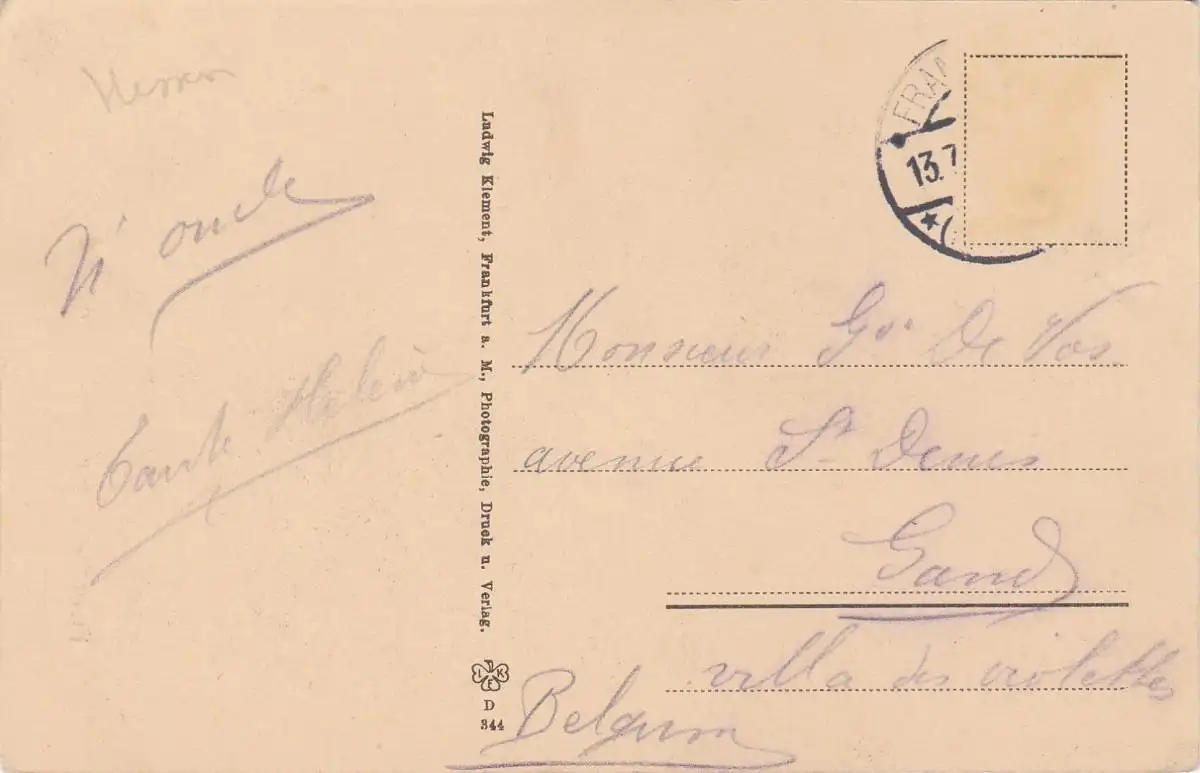 Hessen
N' oncle
Tante Helein
Ludwig Klement, Frankfurt a. M., Photographie, Druck u. Verlag.
L K F
D
344
FRA
13.7
Monsieur Gv. De Vos
avenue St Denis
Gand
villa des violettes
Belgium